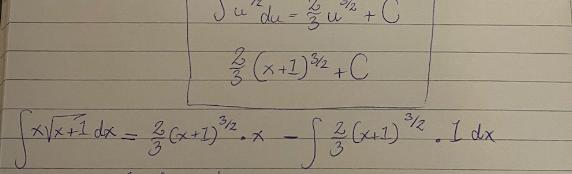 ∫ u^1/2 du = 2/3 u^3/2 + C
2/3 (x+1)^3/2 + C
∫ x√(x+1) dx = 2/3 (x+1)^3/2 · x − ∫ 2/3 (x+1)^3/2 · 1 dx